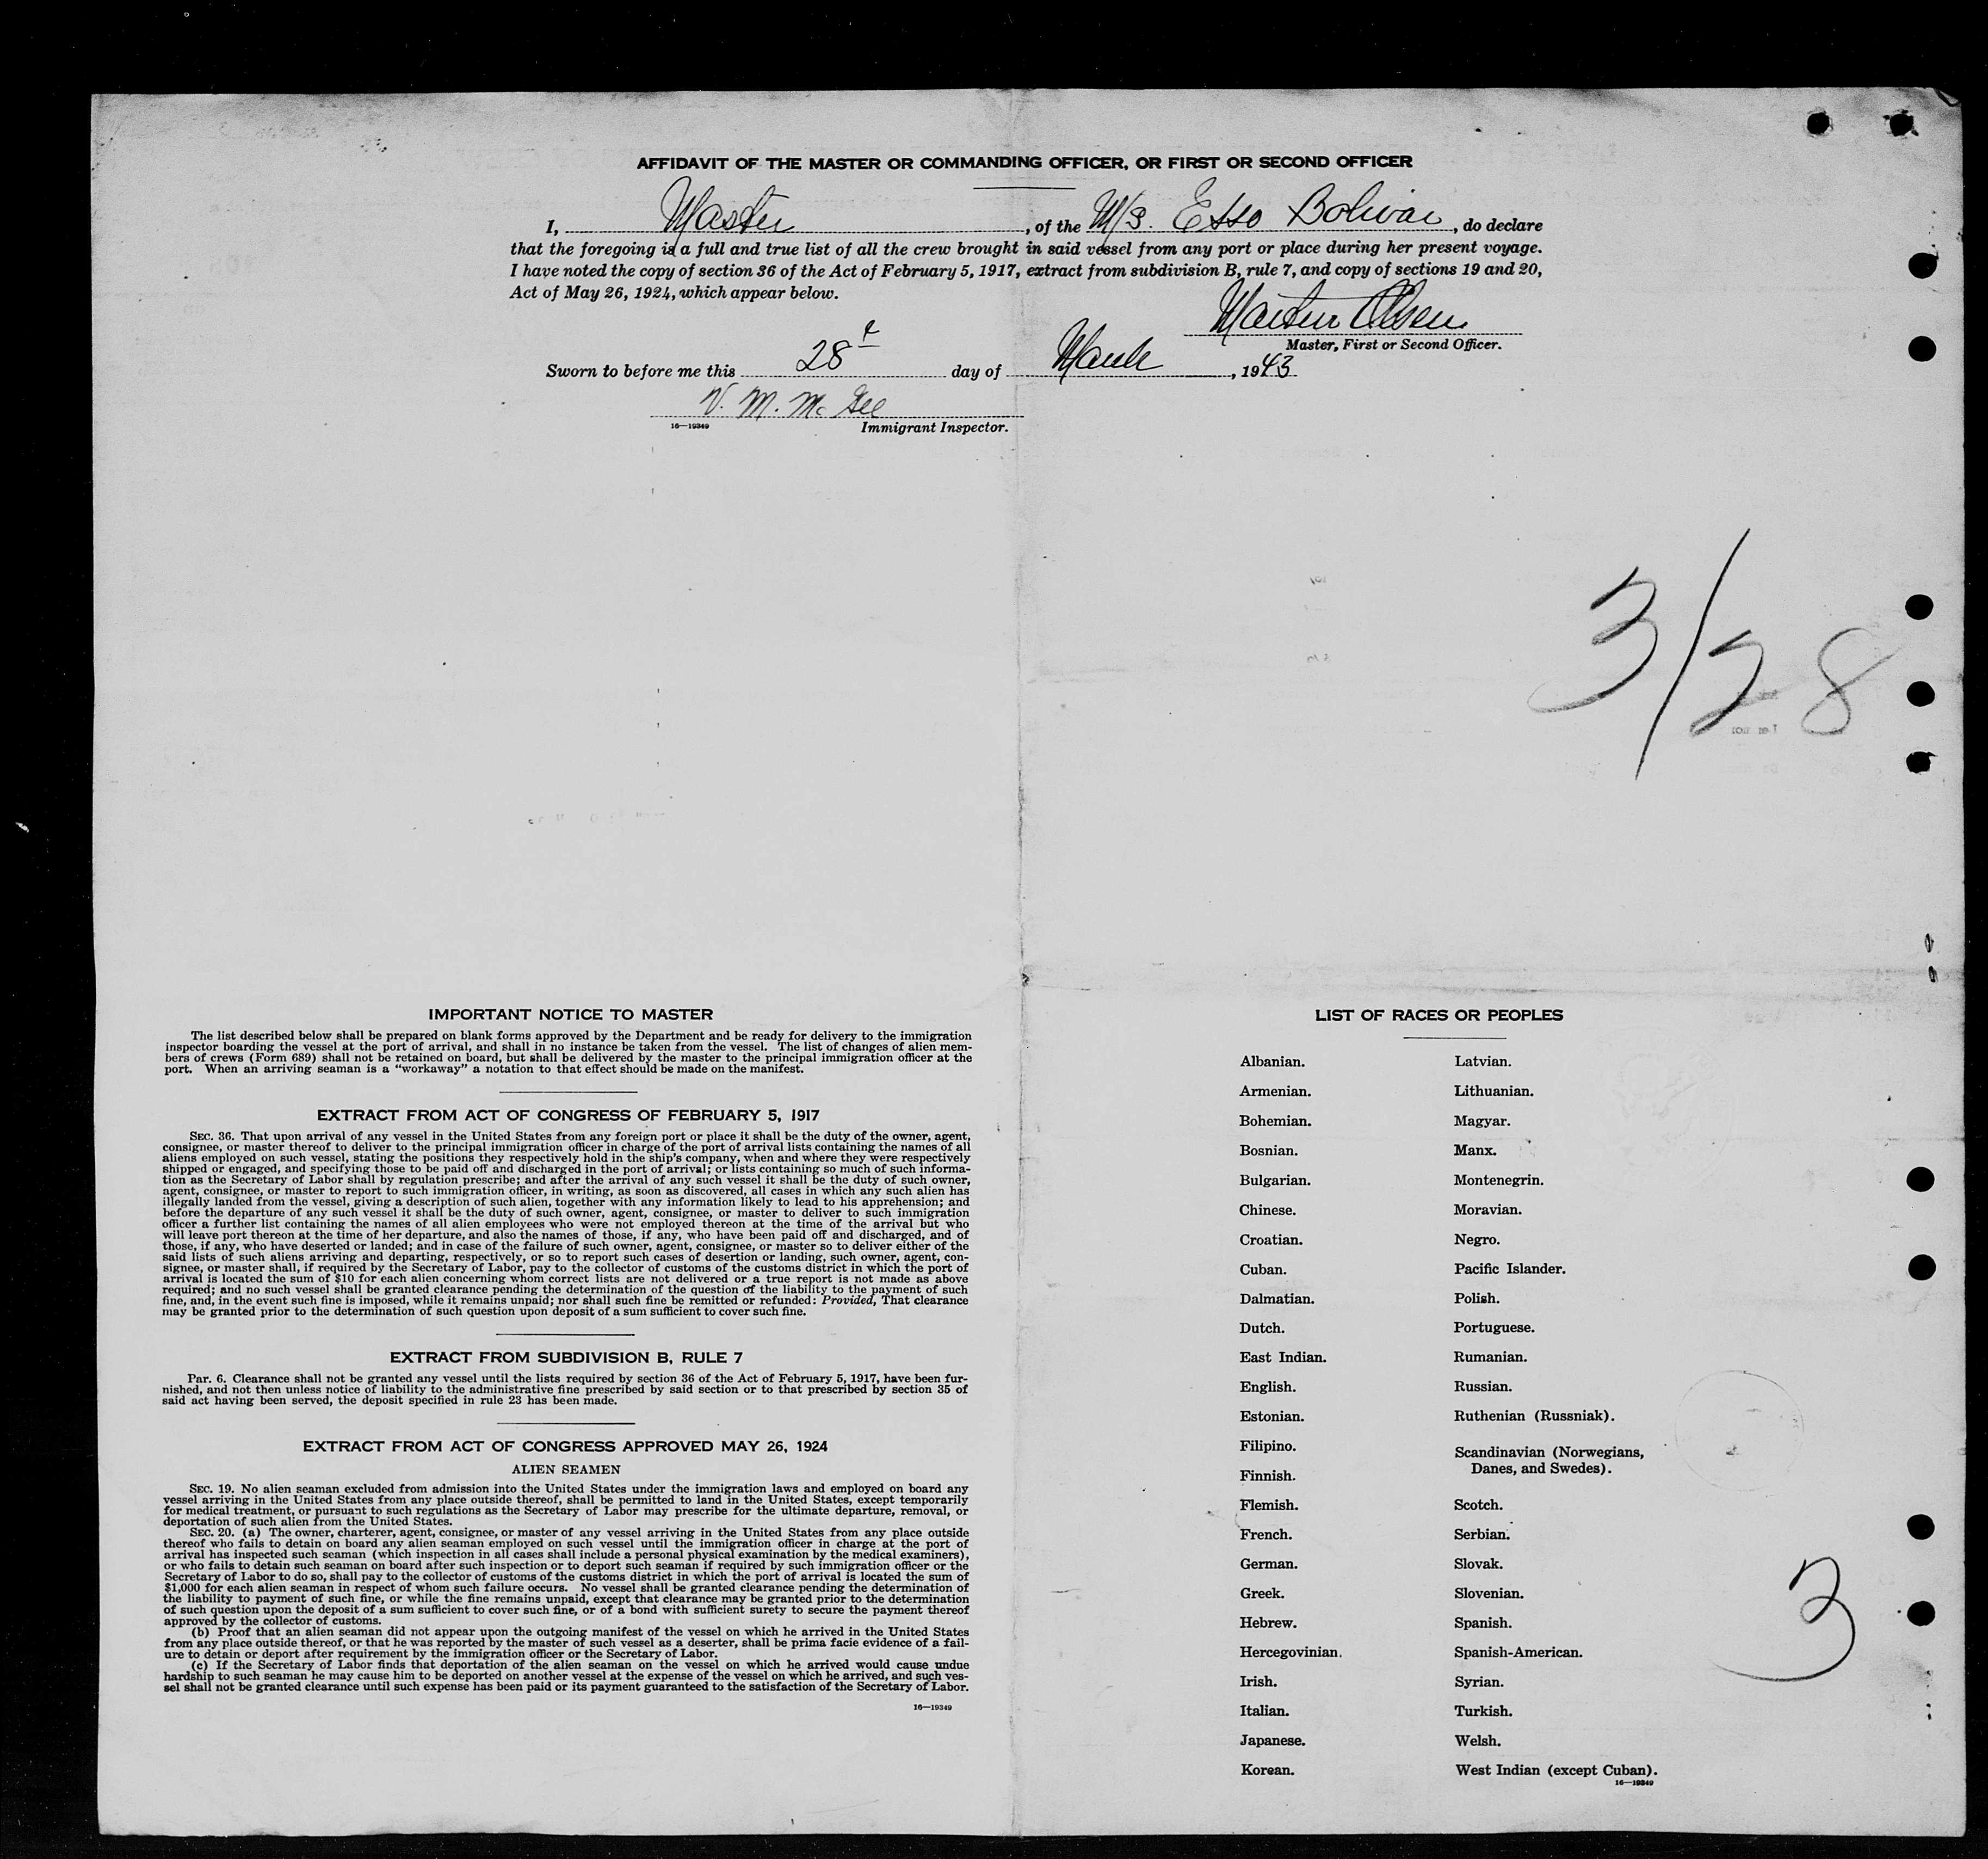 AFFIDAVIT OF THE MASTER OR COMMANDING OFFICER, OR FIRST OR SECOND OFFICER
I, Master, of the M/S. Esso Bolivar, do declare
that the foregoing is a full and true list of all the crew brought in said vessel from any port or place during her present voyage.
I have noted the copy of section 36 of the Act of February 5, 1917, extract from subdivision B, rule 7, and copy of sections 19 and 20,
Act of May 26, 1924, which appear below.
Martin Olsen
Master, First or Second Officer.
Sworn to before me this 28 day of March, 1943
V. M. McGee
16—19349 Immigrant Inspector.
3/28
IMPORTANT NOTICE TO MASTER
The list described below shall be prepared on blank forms approved by the Department and be ready for delivery to the immigration
inspector boarding the vessel at the port of arrival, and shall in no instance be taken from the vessel. The list of changes of alien mem-
bers of crews (Form 689) shall not be retained on board, but shall be delivered by the master to the principal immigration officer at the
port. When an arriving seaman is a “workaway” a notation to that effect should be made on the manifest.
EXTRACT FROM ACT OF CONGRESS OF FEBRUARY 5, 1917
SEC. 36. That upon arrival of any vessel in the United States from any foreign port or place it shall be the duty of the owner, agent,
consignee, or master thereof to deliver to the principal immigration officer in charge of the port of arrival lists containing the names of all
aliens employed on such vessel, stating the positions they respectively hold in the ship's company, when and where they were respectively
shipped or engaged, and specifying those to be paid off and discharged in the port of arrival; or lists containing so much of such informa-
tion as the Secretary of Labor shall by regulation prescribe; and after the arrival of any such vessel it shall be the duty of such owner,
agent, consignee, or master to report to such immigration officer, in writing, as soon as discovered, all cases in which any such alien has
illegally landed from the vessel, giving a description of such alien, together with any information likely to lead to his apprehension; and
before the departure of any such vessel it shall be the duty of such owner, agent, consignee, or master to deliver to such immigration
officer a further list containing the names of all alien employees who were not employed thereon at the time of the arrival but who
will leave port thereon at the time of her departure, and also the names of those, if any, who have been paid off and discharged, and of
those, if any, who have deserted or landed; and in case of the failure of such owner, agent, consignee, or master so to deliver either of the
said lists of such aliens arriving and departing, respectively, or so to report such cases of desertion or landing, such owner, agent, con-
signee, or master shall, if required by the Secretary of Labor, pay to the collector of customs of the customs district in which the port of
arrival is located the sum of $10 for each alien concerning whom correct lists are not delivered or a true report is not made as above
required; and no such vessel shall be granted clearance pending the determination of the question of the liability to the payment of such
fine, and, in the event such fine is imposed, while it remains unpaid; nor shall such fine be remitted or refunded: Provided, That clearance
may be granted prior to the determination of such question upon deposit of a sum sufficient to cover such fine.
EXTRACT FROM SUBDIVISION B, RULE 7
Par. 6. Clearance shall not be granted any vessel until the lists required by section 36 of the Act of February 5, 1917, have been fur-
nished, and not then unless notice of liability to the administrative fine prescribed by said section or to that prescribed by section 35 of
said act having been served, the deposit specified in rule 23 has been made.
EXTRACT FROM ACT OF CONGRESS APPROVED MAY 26, 1924
ALIEN SEAMEN
SEC. 19. No alien seaman excluded from admission into the United States under the immigration laws and employed on board any
vessel arriving in the United States from any place outside thereof, shall be permitted to land in the United States, except temporarily
for medical treatment, or pursuant to such regulations as the Secretary of Labor may prescribe for the ultimate departure, removal, or
deportation of such alien from the United States.
SEC. 20. (a) The owner, charterer, agent, consignee, or master of any vessel arriving in the United States from any place outside
thereof who fails to detain on board any alien seaman employed on such vessel until the immigration officer in charge at the port of
arrival has inspected such seaman (which inspection in all cases shall include a personal physical examination by the medical examiners),
or who fails to detain such seaman on board after such inspection or to deport such seaman if required by such immigration officer or the
Secretary of Labor to do so, shall pay to the collector of customs of the customs district in which the port of arrival is located the sum of
$1,000 for each alien seaman in respect of whom such failure occurs. No vessel shall be granted clearance pending the determination of
the liability to payment of such fine, or while the fine remains unpaid, except that clearance may be granted prior to the determination
of such question upon the deposit of a sum sufficient to cover such fine, or of a bond with sufficient surety to secure the payment thereof
approved by the collector of customs.
(b) Proof that an alien seaman did not appear upon the outgoing manifest of the vessel on which he arrived in the United States
from any place outside thereof, or that he was reported by the master of such vessel as a deserter, shall be prima facie evidence of a fail-
ure to detain or deport after requirement by the immigration officer or the Secretary of Labor.
(c) If the Secretary of Labor finds that deportation of the alien seaman on the vessel on which he arrived would cause undue
hardship to such seaman he may cause him to be deported on another vessel at the expense of the vessel on which he arrived, and such ves-
sel shall not be granted clearance until such expense has been paid or its payment guaranteed to the satisfaction of the Secretary of Labor.
16—19349
LIST OF RACES OR PEOPLES
Albanian.
Armenian.
Bohemian.
Bosnian.
Bulgarian.
Chinese.
Croatian.
Cuban.
Dalmatian.
Dutch.
East Indian.
English.
Estonian.
Filipino.
Finnish.
Flemish.
French.
German.
Greek.
Hebrew.
Hercegovinian.
Irish.
Italian.
Japanese.
Korean.
Latvian.
Lithuanian.
Magyar.
Manx.
Montenegrin.
Moravian.
Negro.
Pacific Islander.
Polish.
Portuguese.
Rumanian.
Russian.
Ruthenian (Russniak).
Scandinavian (Norwegians,
Danes, and Swedes).
Scotch.
Serbian.
Slovak.
Slovenian.
Spanish.
Spanish-American.
Syrian.
Turkish.
Welsh.
West Indian (except Cuban).
16—19349
3